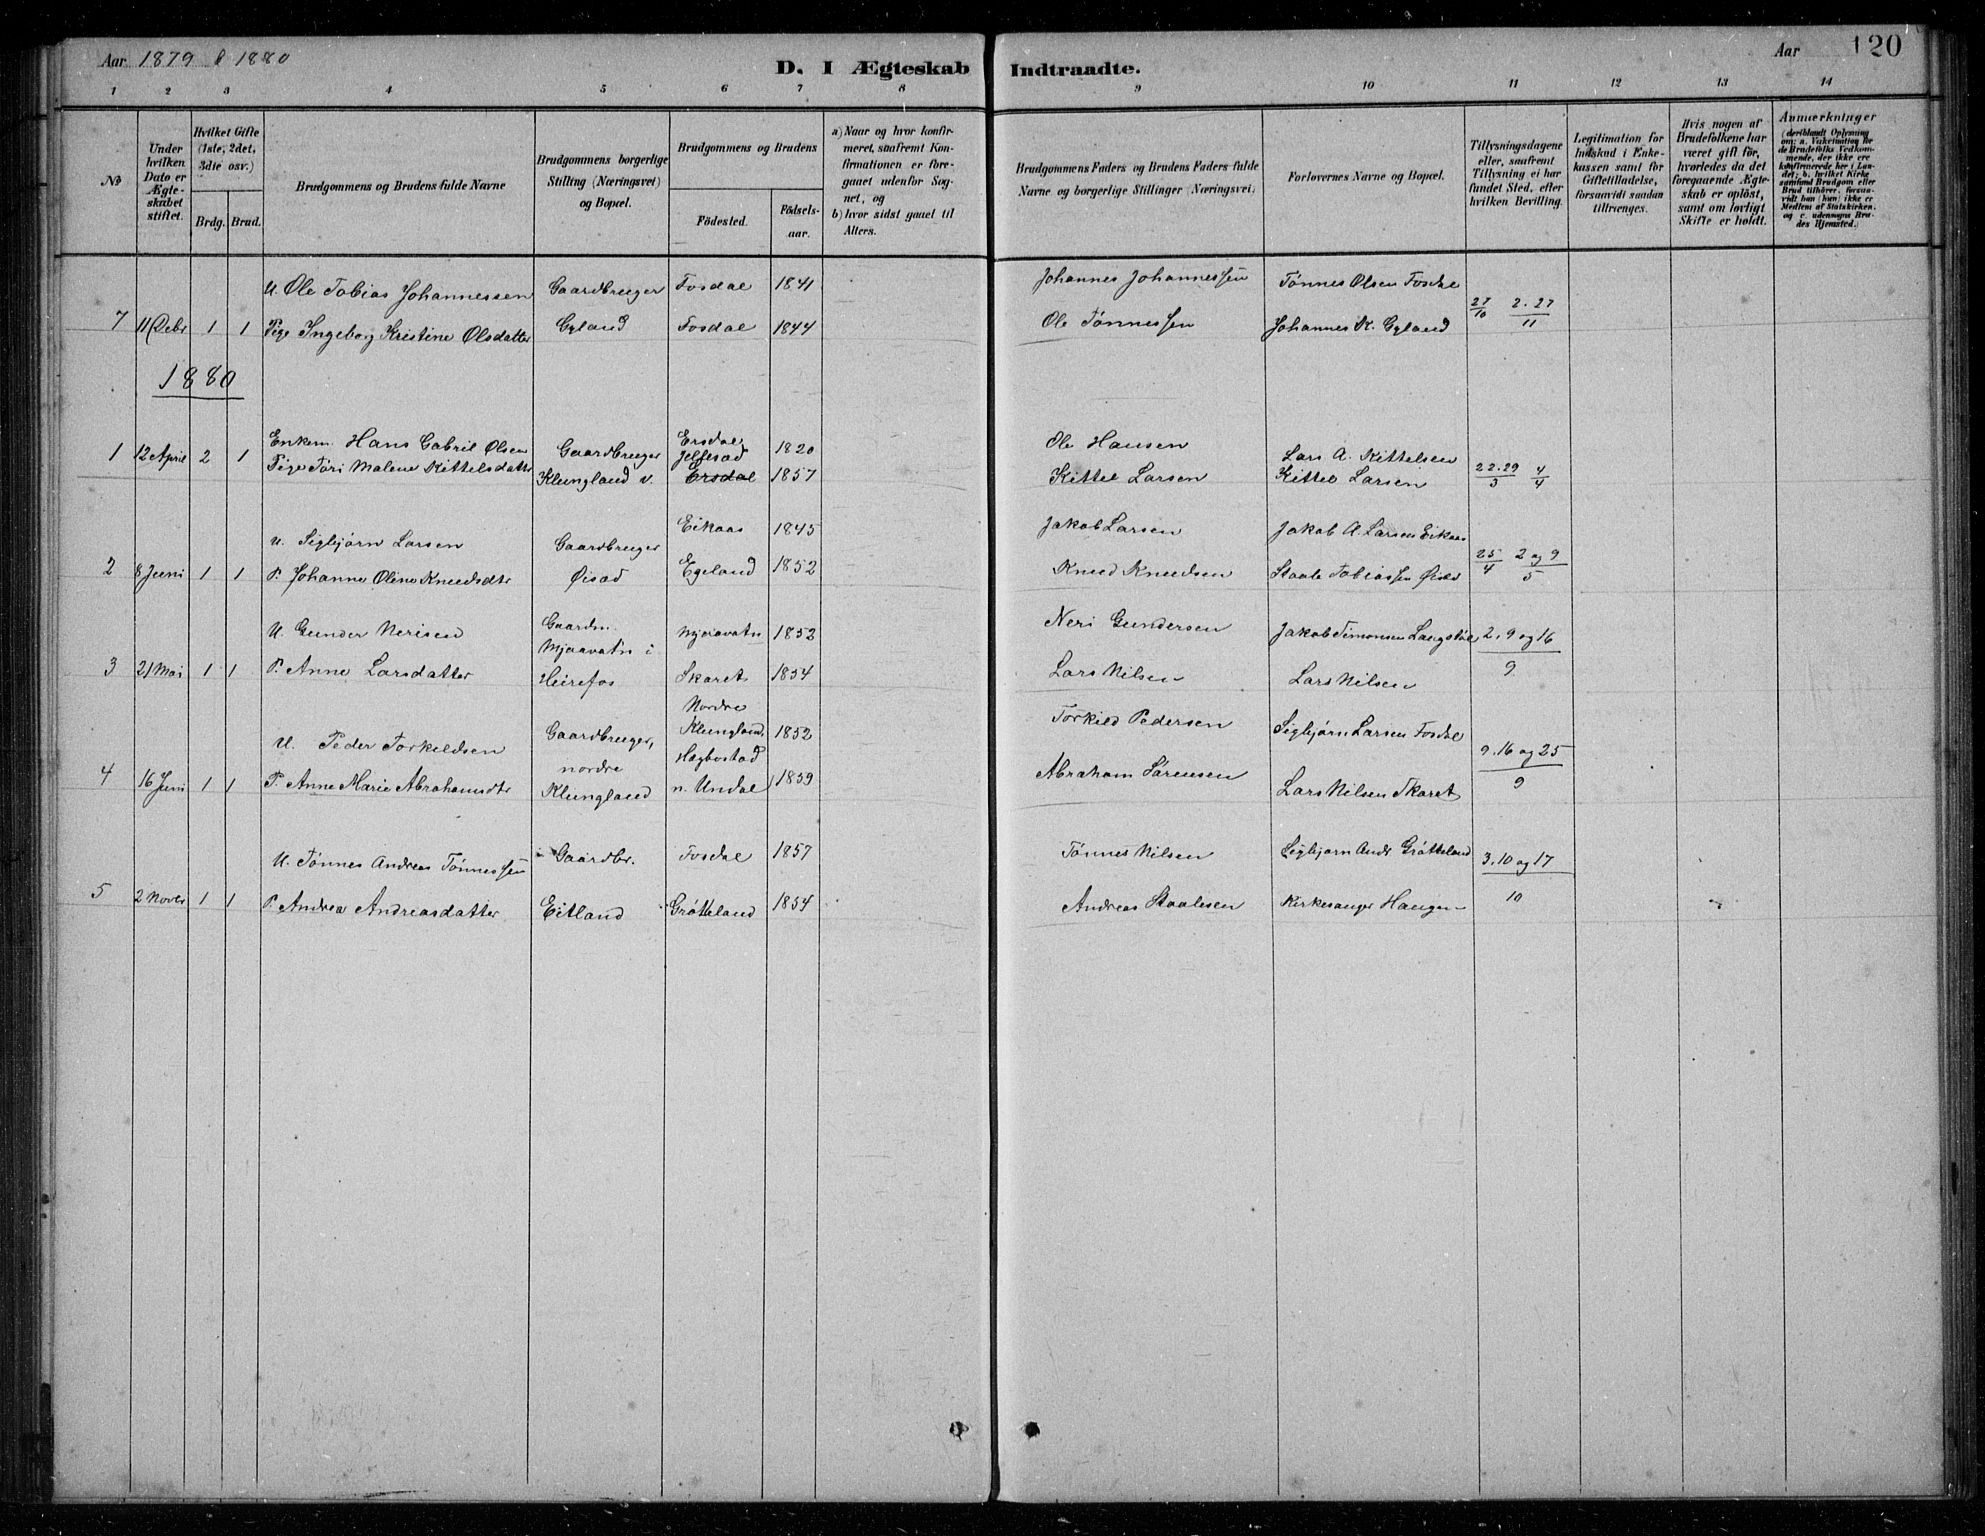 Aar 1879 & 1880
D. I Ægteskab Indtraadte.
Aar 120
1 2 3 4 5 6 7 8 9 10 11 12 13 14
No
Under hvilken Dato er Ægteskabet stiftet.
Hvilket Gifte (1ste, 2det, 3die osv.)
Brdg. Brud.
Brudgommens og Brudens fulde Navne
Brudgommens borgerlige Stilling (Næringsvei) og Bopæl.
Brudgommens og Brudens
Födested.
Födselsaar.
a) Naar og hvor konfirmeret, saafremt Konfirmationen er foregaaet udenfor Sognet, og
b) hvor sidst gaaet til Alters.
Brudgommens Faders og Brudens Faders fulde Navne og borgerlige Stillinger (Næringsvei.)
Forlovernes Navne og Bopæl.
Tillysningsdagene eller, saafremt Tillysning ei har fundet Sted, efter hvilken Bevilling.
Legitimation for Indskud i Enkekassen samt for Giftetilladelse, forsaavidt saadan tiltrænges.
Hvis nogen af Brudefolkene har været gift för, hvorledes da det foregaaende Ægteskab er oplöst, samt om lovligt Skifte er holdt.
Anmærkninger (deriblandt Oplysning om: a. Vakcination for de Brudefolks Vedkommende, der ikke ere konfirmerede her i Landet; b. hvilket Kirkesamfund Brudgom eller Brud tilhörer, forsaavidt han (hun) ikke er Medlem af Statskirken, og c. udensogns Brudes Hjemsted.)
U. Ole Tobias Johannessen Gaardbruger Fosdal 1841 Johannes Johannessen Tönnes Olsen Fosdal
7 11 Debr 1 1 Pige Ingeborg Kristine Olsdatter Gyland Fosdal 1844 Ole Tönnessen Johannes K. Gyland 27/10 2. 27/11
1880
Enkem. Hans Gabriel Olsen Gaardbruger Ersdal 1820 Ole Hansen Lars A. Kittelsen
1 12 April 2 1 Pige Töri Malene Kittelsdatter Klungland v. Ersdal 1857 Kittel Larsen Kittel Larsen 22.29/3 4/4
U. Sigbjörn Larsen Gaardbruger Eikaas 1845 Jakob Larsen Jakob A. Larsen Eikaas
2 8 Juni 1 1 P. Johanne Oline Knudsdtr Öisad Egeland 1852 Knud Knudsen Staale Tobiassen 25/4 2 og 9/5
U. Gunder Nerisen Gaardm. Mjaavatn i Mjaavatn 1852 Neri Gundersen Jakob Simonsen 2. 9 og 16
3 21 Mai 1 1 P. Anne Larsdatter Heirefos Skaret 1854 Lars Nilsen Lars Nilsen 9
U. Peder Torkildsen Gaardbruger, Nordre Klungland 1852 Torkild Pedersen Sigbjörn Larsen Fosdal 9. 16 og 25
4 16 Juni 1 1 P. Anne Marie Abrahamsdtr nordre Klungland Hægbostad n. Undal 1859 Abraham Sörensen Lars Nilsen Skaret 9
U. Tönnes Andreas Tönnessen Gaardbr. Fosdal 1857 Tönnes Nilsen Sigbjorn Andr Grötteland 3. 10 og 17
5 2 Novbr 1 1 P. Andrea Andreasdatter Eitland Grötteland 1854 Andreas Staalesen Kirkesanger Haugen 10